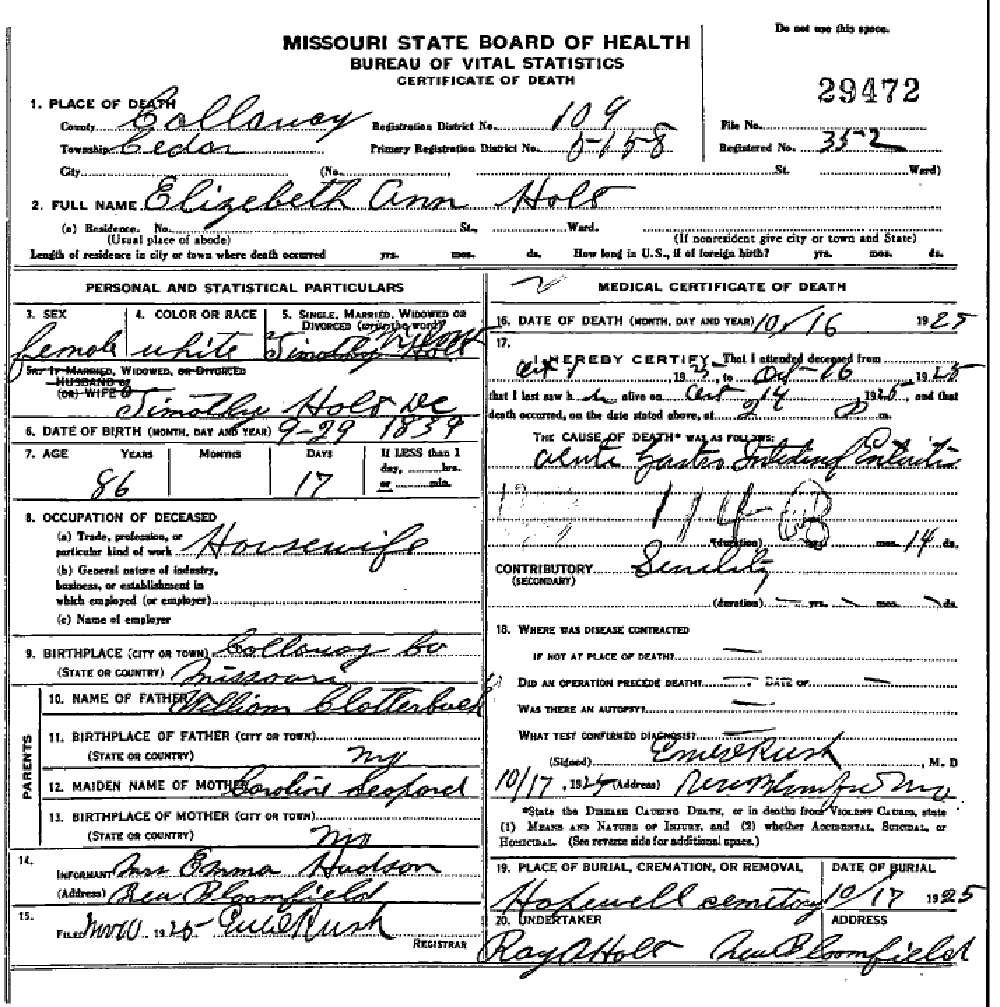 Do not use this space.
MISSOURI STATE BOARD OF HEALTH
BUREAU OF VITAL STATISTICS
CERTIFICATE OF DEATH
29472
1. PLACE OF DEATH
County Callaway Registration District No. 109 File No.
Township Cedar Primary Registration District No. 5158 Registered No. 352
City (No. St. Ward)
2. FULL NAME Elizebeth Ann Holt
(a) Residence. No. St., Ward.
(Usual place of abode) (If nonresident give city or town and State)
Length of residence in city or town where death occurred yrs. mos. ds. How long in U.S., if of foreign birth? yrs. mos. ds.
PERSONAL AND STATISTICAL PARTICULARS
3. SEX 4. COLOR OR RACE 5. SINGLE, MARRIED, WIDOWED OR
DIVORCED (write the word)
female white Timothy Holt
5A. IF MARRIED, WIDOWED, OR DIVORCED
HUSBAND OF
(OR) WIFE OF
Timothy Holt Dc
6. DATE OF BIRTH (MONTH, DAY AND YEAR) 9-29 1839
7. AGE YEARS MONTHS DAYS If LESS than 1
day, hrs.
or min.
86 17
8. OCCUPATION OF DECEASED
(a) Trade, profession, or
particular kind of work Housewife
(b) General nature of industry,
business, or establishment in
which employed (or employer)
(c) Name of employer
9. BIRTHPLACE (CITY OR TOWN) Callaway Co
(STATE OR COUNTRY) Missouri
PARENTS
10. NAME OF FATHER William Clatterbuck
11. BIRTHPLACE OF FATHER (CITY OR TOWN)
(STATE OR COUNTRY)
12. MAIDEN NAME OF MOTHER Caroline
13. BIRTHPLACE OF MOTHER (CITY OR TOWN)
(STATE OR COUNTRY) Mo
14.
INFORMANT Mrs Emma Hudson
(Address) New Bloomfield
15.
FILED 1925 Rush
REGISTRAR
MEDICAL CERTIFICATE OF DEATH
16. DATE OF DEATH (MONTH, DAY AND YEAR) 10/16 1925
17.
I HEREBY CERTIFY, That I attended deceased from
1925, to Oct 16 1925
that I last saw h alive on Oct 14 1925, and that
death occurred, on the date stated above, at m.
THE CAUSE OF DEATH* WAS AS FOLLOWS:
acute Gastro
(duration) yrs. mos. 14 ds.
CONTRIBUTORY Senility
(SECONDARY)
(duration) yrs. mos. ds.
18. WHERE WAS DISEASE CONTRACTED
IF NOT AT PLACE OF DEATH?
DID AN OPERATION PRECEDE DEATH? DATE OF
WAS THERE AN AUTOPSY?
WHAT TEST CONFIRMED DIAGNOSIS?
(Signed) Rush, M. D
10/17, 1925 (Address) New Bloomfield Mo
*State the DISEASE CAUSING DEATH, or in deaths from VIOLENT CAUSES, state
(1) MEANS AND NATURE OF INJURY, and (2) whether ACCIDENTAL, SUICIDAL, or
HOMICIDAL. (See reverse side for additional space.)
19. PLACE OF BURIAL, CREMATION, OR REMOVAL DATE OF BURIAL
Hopewell cemetery 10/17 1925
20. UNDERTAKER ADDRESS
Ray A Holt New Bloomfield